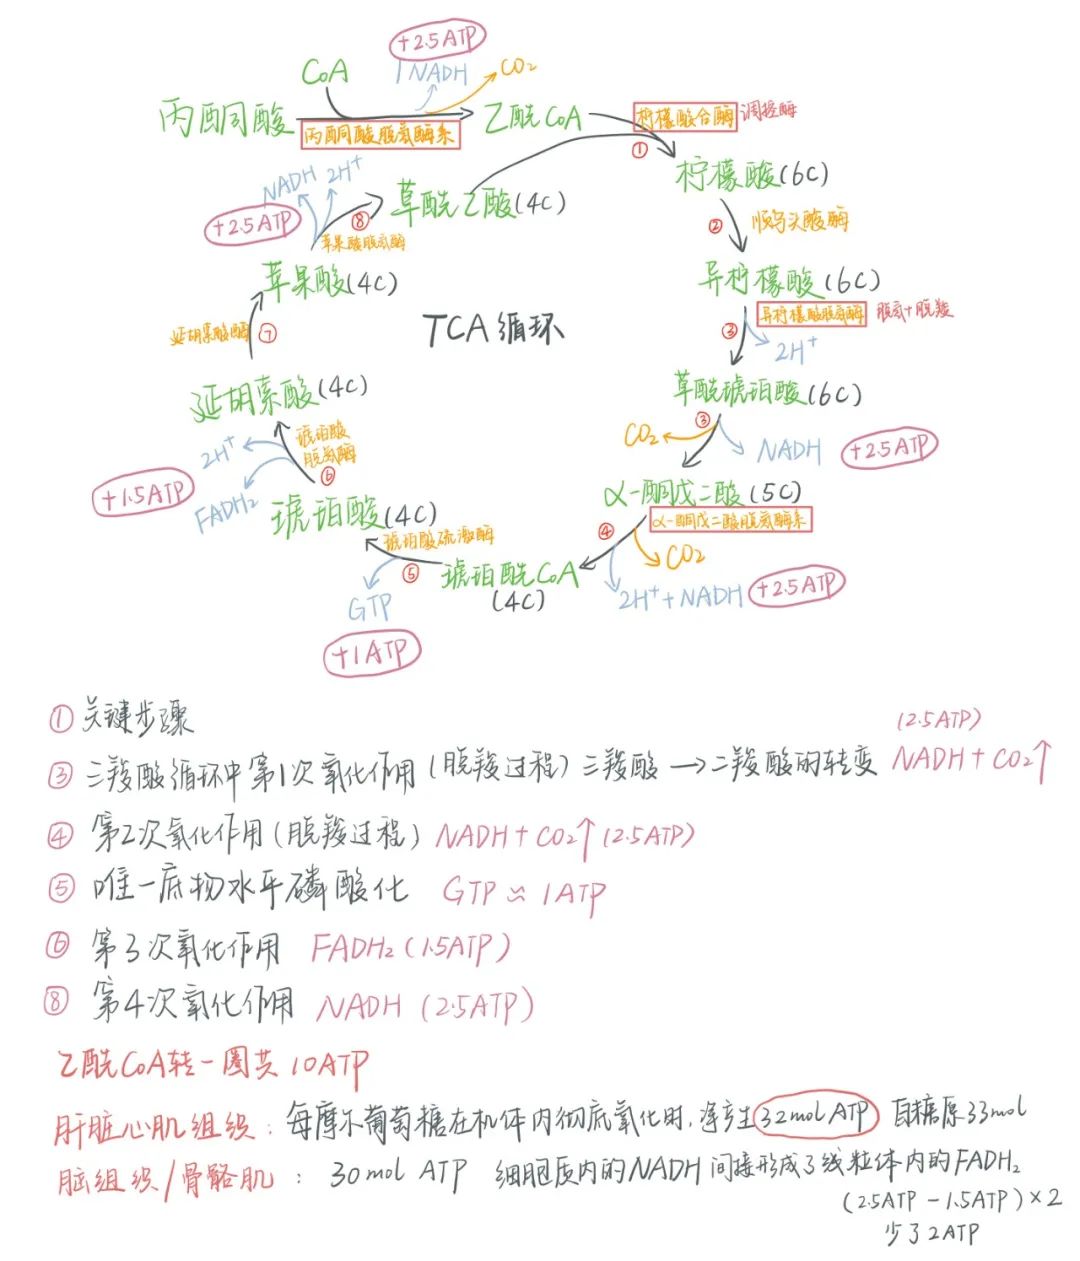 +2.5ATP
CoA
1NADH
CO₂
丙酮酸
乙酰CoA
丙酮酸脱氢酶系
柠檬酸合酶 调控酶
①
柠檬酸(6C)
NADH 2H⁺
草酰乙酸(4C)
⑧
+2.5ATP
苹果酸脱氢酶
② 顺乌头酸酶
苹果酸(4C)
异柠檬酸(6C)
TCA循环
异柠檬酸脱氢酶 脱氢+脱羧
延胡索酸酶 ⑦
③
2H⁺
延胡索酸(4C)
草酰琥珀酸(6C)
③
CO₂
NADH +2.5ATP
2H⁺
琥珀酸
脱氢酶
⑥
+1.5ATP
FADH₂
α-酮戊二酸(5C)
琥珀酸(4C)
α-酮戊二酸脱氢酶系
④
琥珀酸硫激酶
CO₂
⑤
琥珀酰CoA
(4C)
2H⁺+NADH +2.5ATP
GTP
+1ATP
① 关键步骤
(2.5ATP)
③ 三羧酸循环中第1次氧化作用(脱羧过程)三羧酸→二羧酸的转变 NADH+CO₂↑
④ 第2次氧化作用(脱羧过程) NADH+CO₂↑(2.5ATP)
⑤ 唯一底物水平磷酸化 GTP≈1ATP
⑥ 第3次氧化作用 FADH₂(1.5ATP)
⑧ 第4次氧化作用 NADH(2.5ATP)
乙酰CoA转一圈共10ATP
肝脏心肌组织:每摩尔葡萄糖在机体内彻底氧化时,净产生32molATP 自糖原33mol
脑组织/骨骼肌:30mol ATP 细胞质内的NADH间接形成了线粒体内的FADH₂
(2.5ATP-1.5ATP)×2
少了2ATP